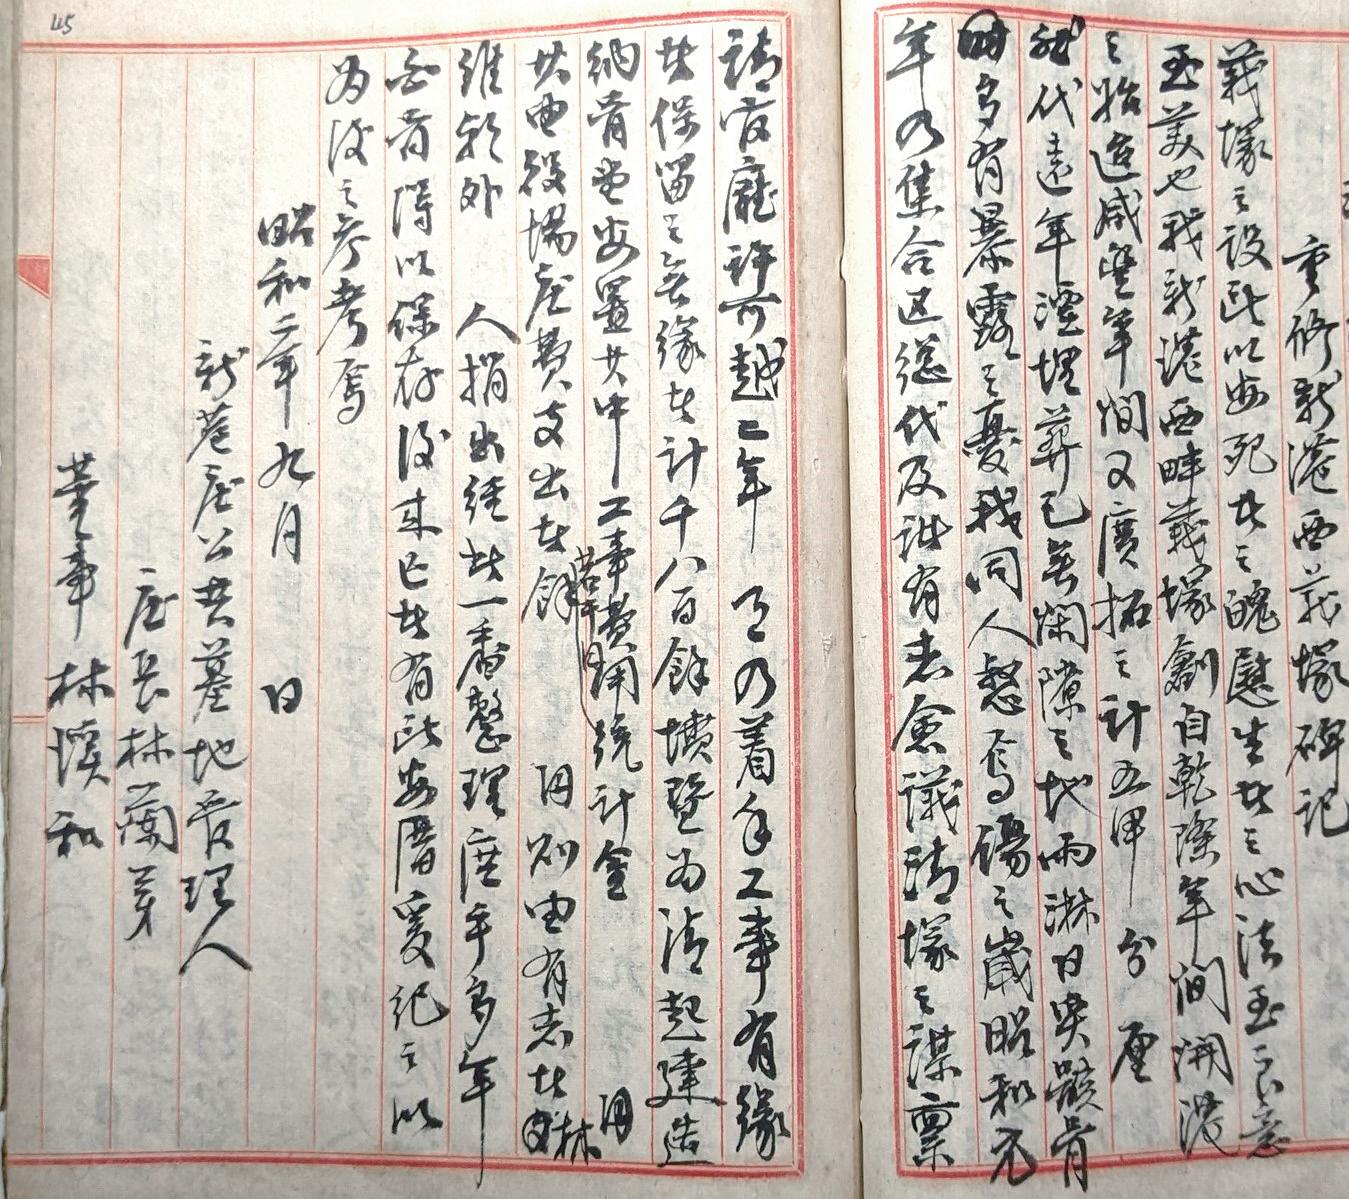 重修新港西義塚碑記
義塚之設所以安死者之魄慰生者之心法至良意
至美也我新港西畔義塚創自乾隆年間開港
之始迨咸豐年間又廣拓之計五甲 分 厘
代遠年湮埋葬已無閑隙之地雨淋日炙骸骨
時多有暴露之憂我同人怒焉傷之歲昭和元
年乃集合區總代及諸有志會議清塚之謀稟
請官廳許可越二年 月乃着手工事有緣
者保留之無緣者計千八百餘壙暨為清起建造
納骨堂安置其中工事費用統計金 円
若干円
其由役場庄費支出者餘 円則由有志者林
維新外 人捐出經此一番整理庶乎多年
古者得以保存後來亡者有此安厝爰紀之以
為後之參考焉
昭和二年九月 日
新巷庄公共墓地管理人
庄長林蘭芽
董事 林溪和
45